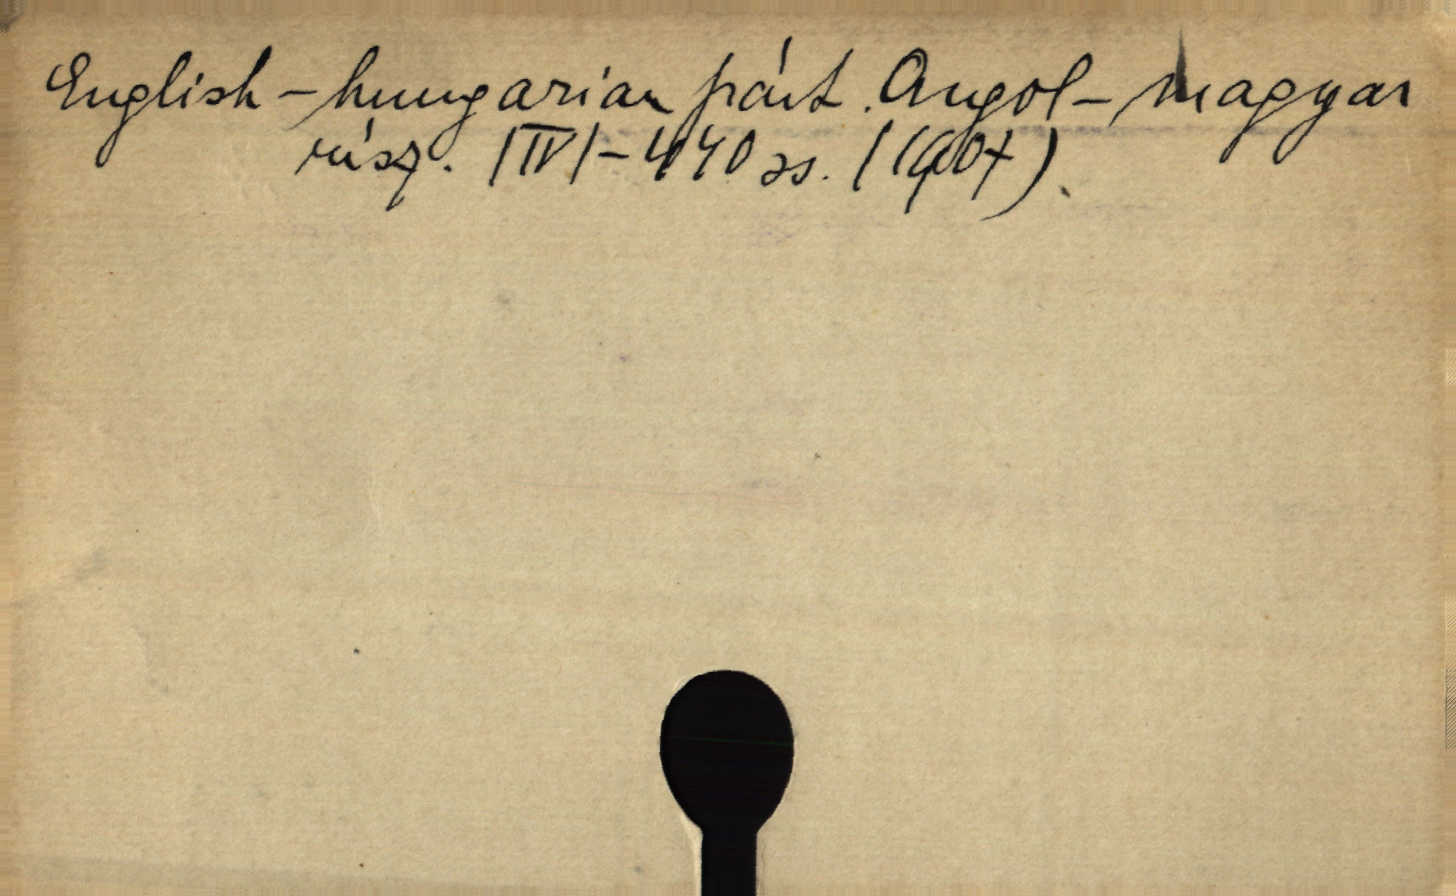 English - hungarian párt. Angol - magyar
rész. |IV| - 440 ss. (1907).